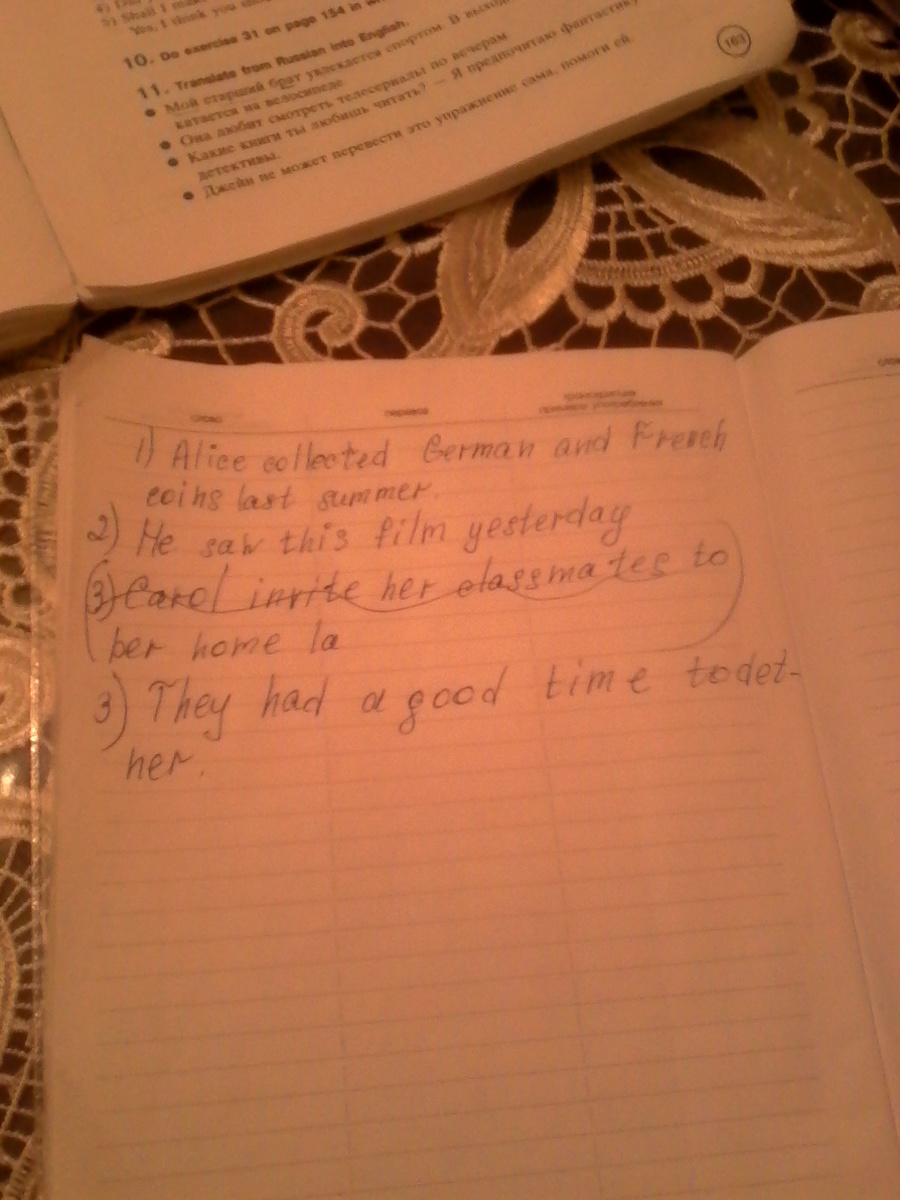 5) Shall I
Yes, I think you
10. Do exercise 31 on page 154 in
11. Translate from Russian into English.
• Мой старший брат увлекается спортом. В
катается на велосипеде
• Она любит смотреть телесериалы по вечерам
• Какие книги ты любишь читать? — Я предпочитаю фантастику
детективы.
• Джейн не может перевести это упражнение сама, помоги ей.
163
слово перевод транскрипция
пример употребления
1) Alice collected German and French
coins last summer.
2) He saw this film yesterday
3) Carol invite her classmates to
her home la
3) They had a good time todet-
her.